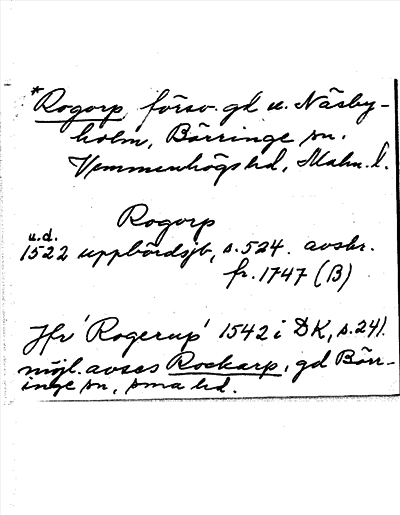 *Rogorp, försv. gd u. Näsby-
holm, Börringe sn.
Vemmenhögs hd, Malm. l.
Rogorp
u.d.
1522 uppbördsjb, s. 524. avskr.
fr. 1747 (B)
Jfr 'Rogerup' 1542 i DK, s. 241.
möjl. avses Rockarp, gd Börr-
inge sn, sma hd.